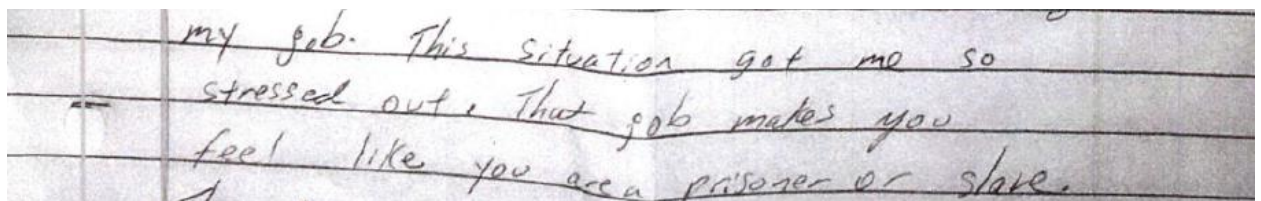 my job. This situation got me so
stressed out. That job makes you
feel like you are a prisoner or slave.